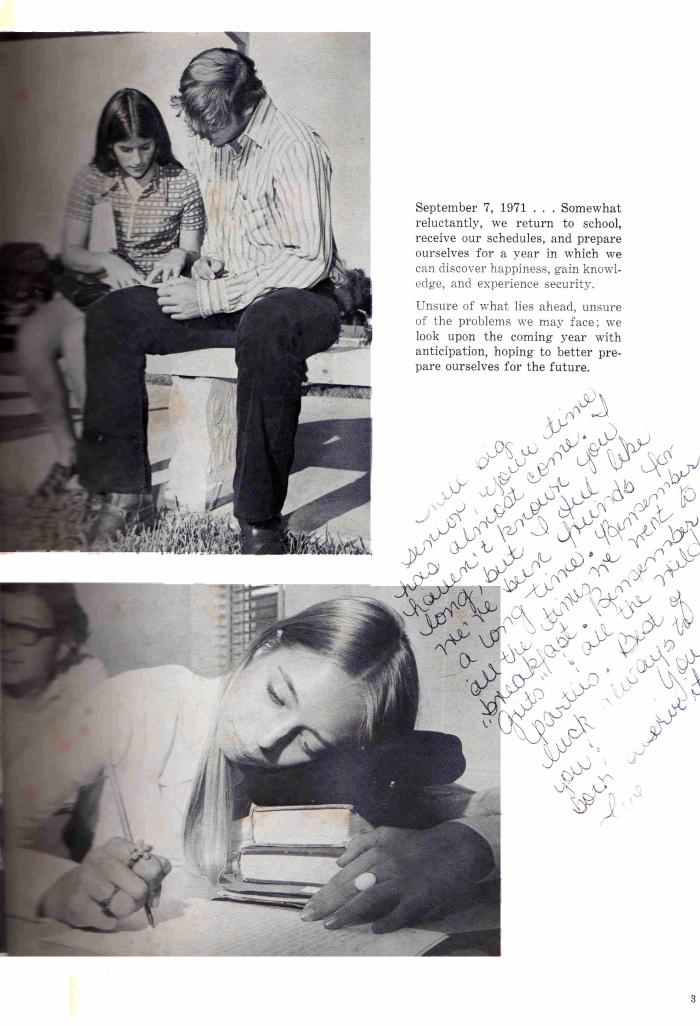 September 7, 1971 . . . Somewhat
reluctantly, we return to school,
receive our schedules, and prepare
ourselves for a year in which we
can discover happiness, gain knowl-
edge, and experience security.
Unsure of what lies ahead, unsure
of the problems we may face; we
look upon the coming year with
anticipation, hoping to better pre-
pare ourselves for the future.
Well big
senior your time
has almost come. I
haven't known you
long, but I feel like
we've been friends for
a long time. Remember
all the times we went to
"breakfast". Remember
Guts" & all the wild
parties. Best of
luck always to
you!
You
3